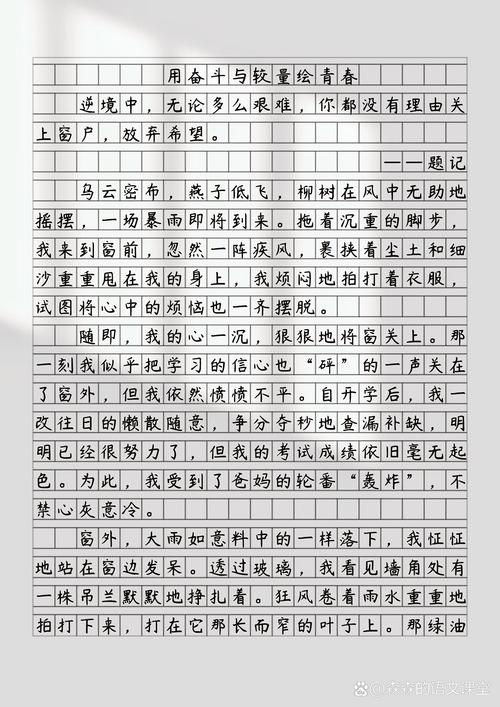 用奋斗与较量绘青春
逆境中，无论多么艰难，你都没有理由关
上窗户，放弃希望。
——题记
乌云密布，燕子低飞，柳树在风中无助地
摇摆，一场暴雨即将到来。拖着沉重的脚步，
我来到窗前，忽然一阵疾风，裹挟着尘土和细
沙重重甩在我的身上，我烦闷地拍打着衣服，
试图将心中的烦恼也一齐摆脱。
随即，我的心一沉，狠狠地将窗关上。那
一刻我似乎把学习的信心也“砰”的一声关在
了窗外，但我依然愤愤不平。自开学后，我一
改往日的懒散随意，争分夺秒地查漏补缺，明
明已经很努力了，但我的考试成绩依旧毫无起
色。为此，我受到了爸妈的轮番“轰炸”，不
禁心灰意冷。
窗外，大雨如意料中的一样落下，我怔怔
地站在窗边发呆。透过玻璃，我看见墙角处有
一株吊兰默默地挣扎着。狂风卷着雨水重重地
拍打下来，打在它那长而窄的叶子上。那绿油
@森森的语文课堂